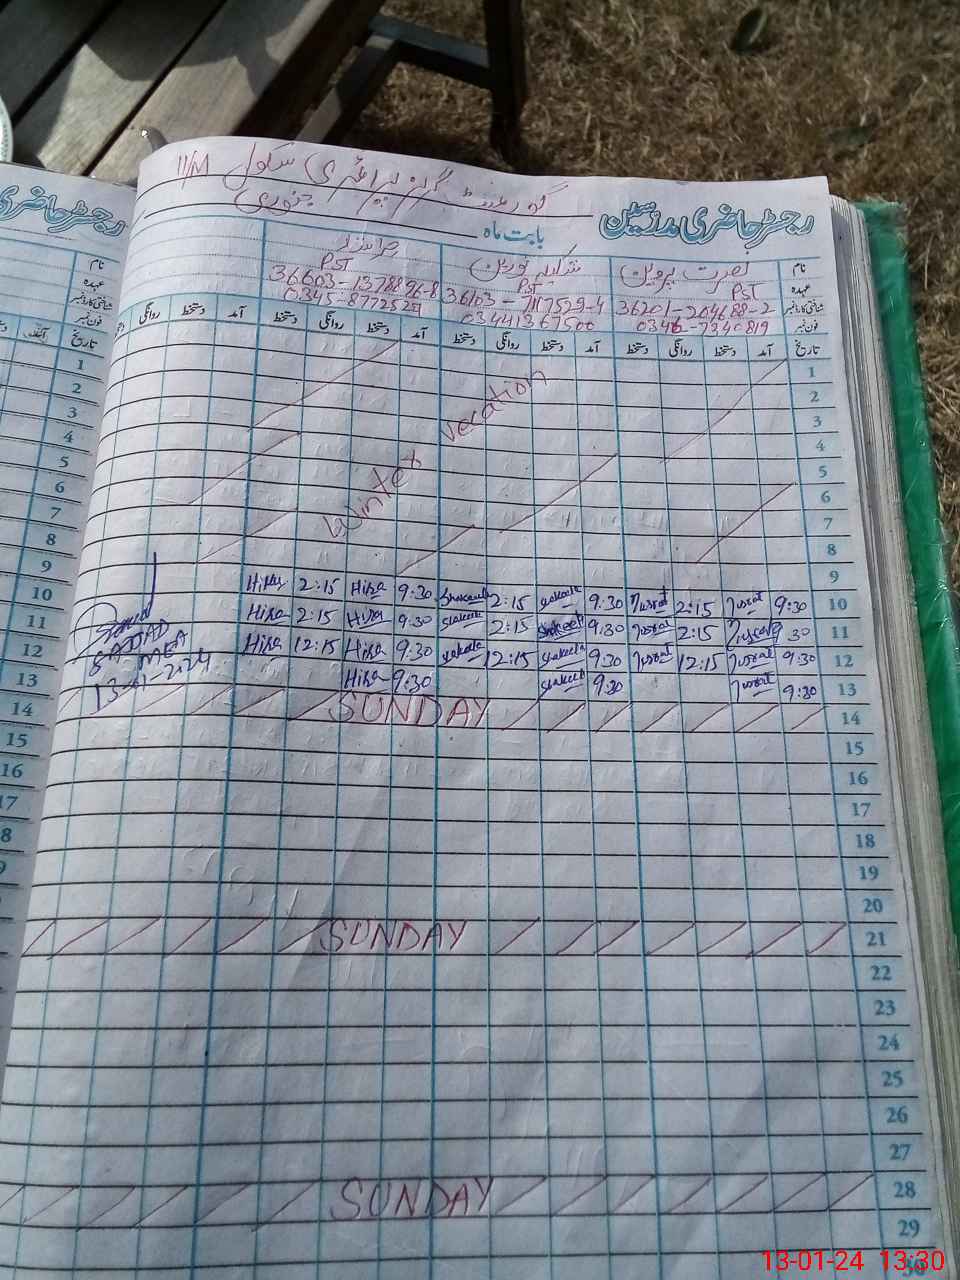 گورنمنٹ گرلز پرائمری سکول 11/M
رجسٹر حاضری مدرسین
بابت ماہ جنوری
رجسٹر حاضری
نام نصرت پروین شکیلہ نورین
عہدہ PST PST PST
شناختی کارڈ نمبر 36201-204688-2 36103-7117529-4 36603-1378896-8
فون نمبر 0346-7340819 03441367500 0345-8772529
تاریخ آمد دستخط روانگی دستخط آمد دستخط روانگی دستخط آمد دستخط روانگی دستخط آمد دستخط روانگی
1
2
3
4
5
6
7
8
9
Winter vecation
Hira 2:15 Hira 9:30 Shakeela 2:15 Shakeela 9:30 Nusrat 2:15 Nusrat 9:30 10
Hira 2:15 Hira 9:30 Shakeela 2:15 Shakeela 9:30 Nusrat 2:15 Nusrat 30 11
Hira 12:15 Hira 9:30 Shakeela 12:15 Shakeela 9:30 Nusrat 12:15 Nusrat 9:30 12
Hira 9:30 Shakeela 9:30 Nusrat 9:30 13
SAJJAD
MEA
13-01-2024
SUNDAY 14
15
16
17
18
19
20
SUNDAY 21
22
23
24
25
26
27
SUNDAY 28
29
30
1
2
3
4
5
6
7
8
9
10
11
12
13
14
15
16
17
8
9
13-01-24 13:30